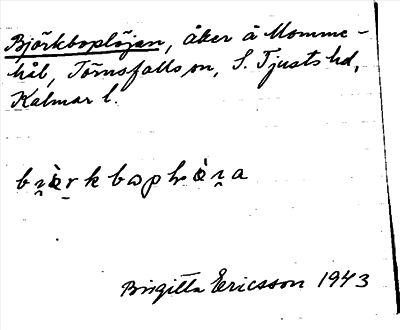 Björkboplöjan, åker å Momme-
hål, Törnsfalls sn, S. Tjusts hd,
Kalmar l.
Birgitta Ericsson 1943